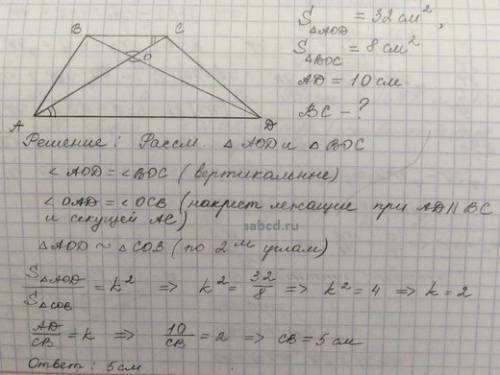 B C
O
A D
S△AOD = 32 см²,
S△BOC = 8 см²
AD = 10 см
BC – ?
Решение: Рассм. △ AOD и △ BOC
∠ AOD = ∠ BOC (вертикальные)
∠ OAD = ∠ OCB (накрест лежащие при AD || BC
и секущей AC)
sabcd.ru
△ AOD ~ △ COB (по 2ᵐ углам)
S△AOD / S△COB = k² => k² = 32/8 => k² = 4 => k = 2
AD/CB = k => 10/CB = 2 => CB = 5 см
Ответ: 5 см